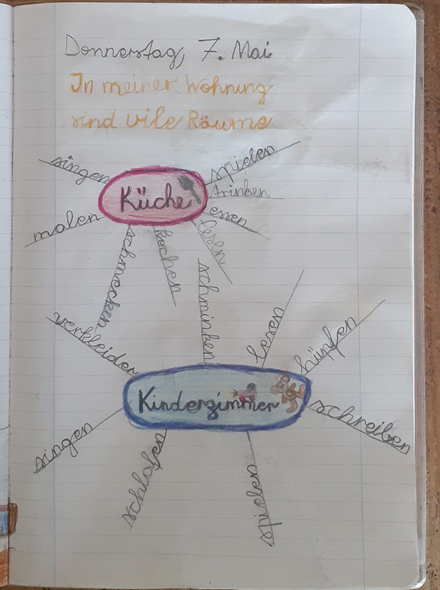 Donnerstag, 7. Mai
In meiner Wohnung
sind vile Räume
singen
spielen
Küche
trinken
malen
essen
lesen
kochen
schmecken
schminken
verkleiden
losen
hüpfen
Kinderzimmer
schreiben
singen
schlafen
spielen